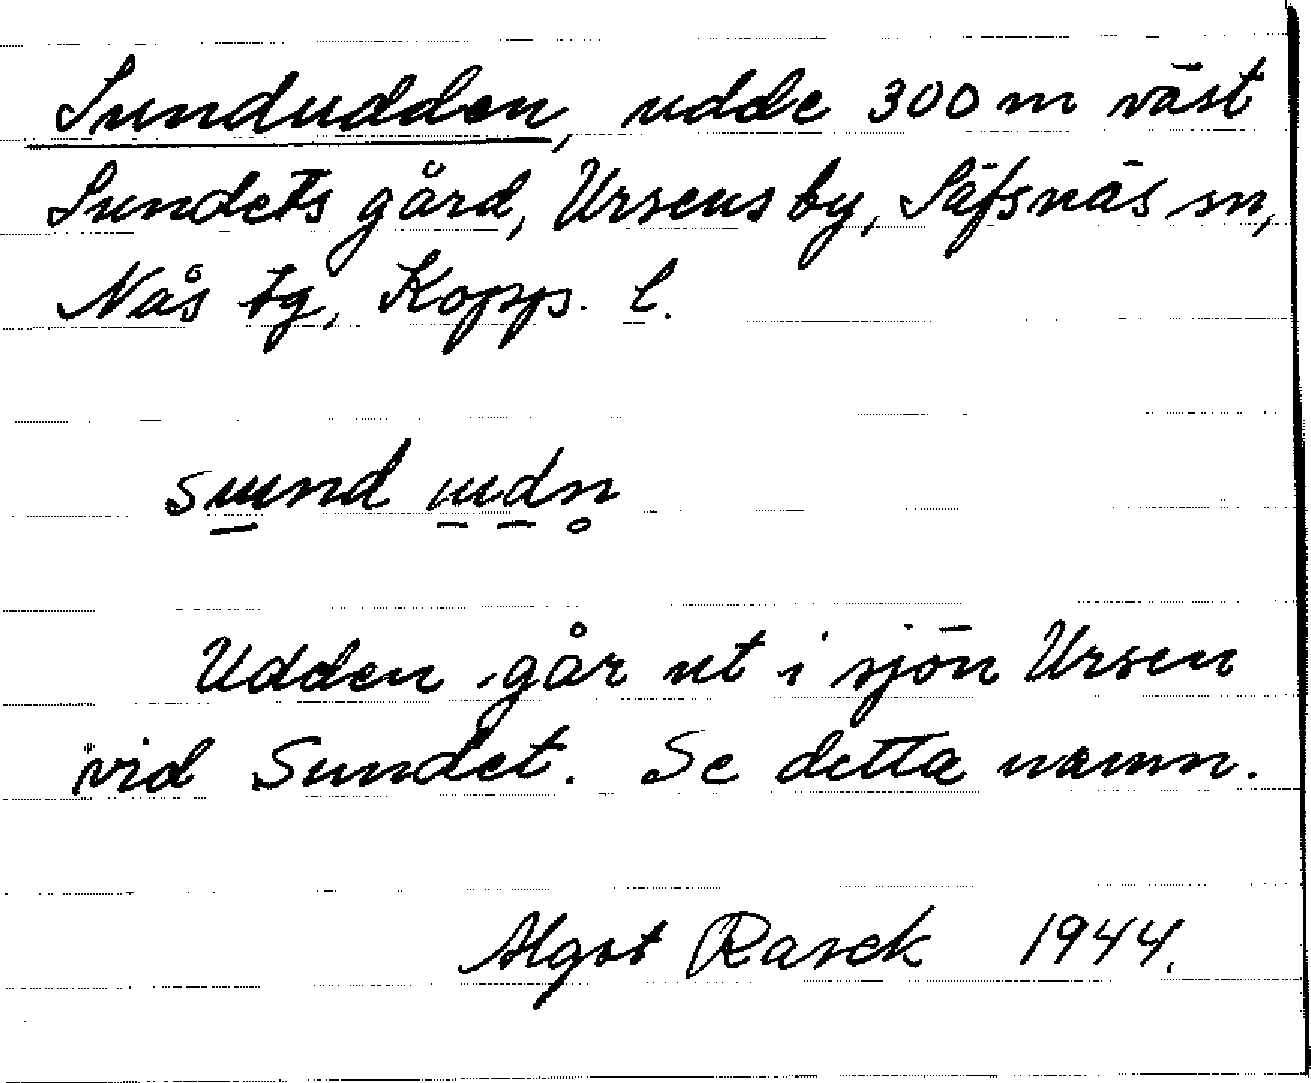 Sundudden, udde 300 m väst
Sundets gård, Ursens by, Säfsnäs sn,
Nås tg, Kopps. l.
Udden går ut i sjön Ursen
vid Sundet. Se detta namn.
Algot Rasck 1944.